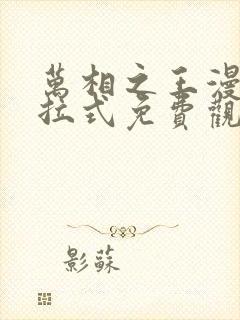 萬相之王漫
拉式免費觀
影蘇